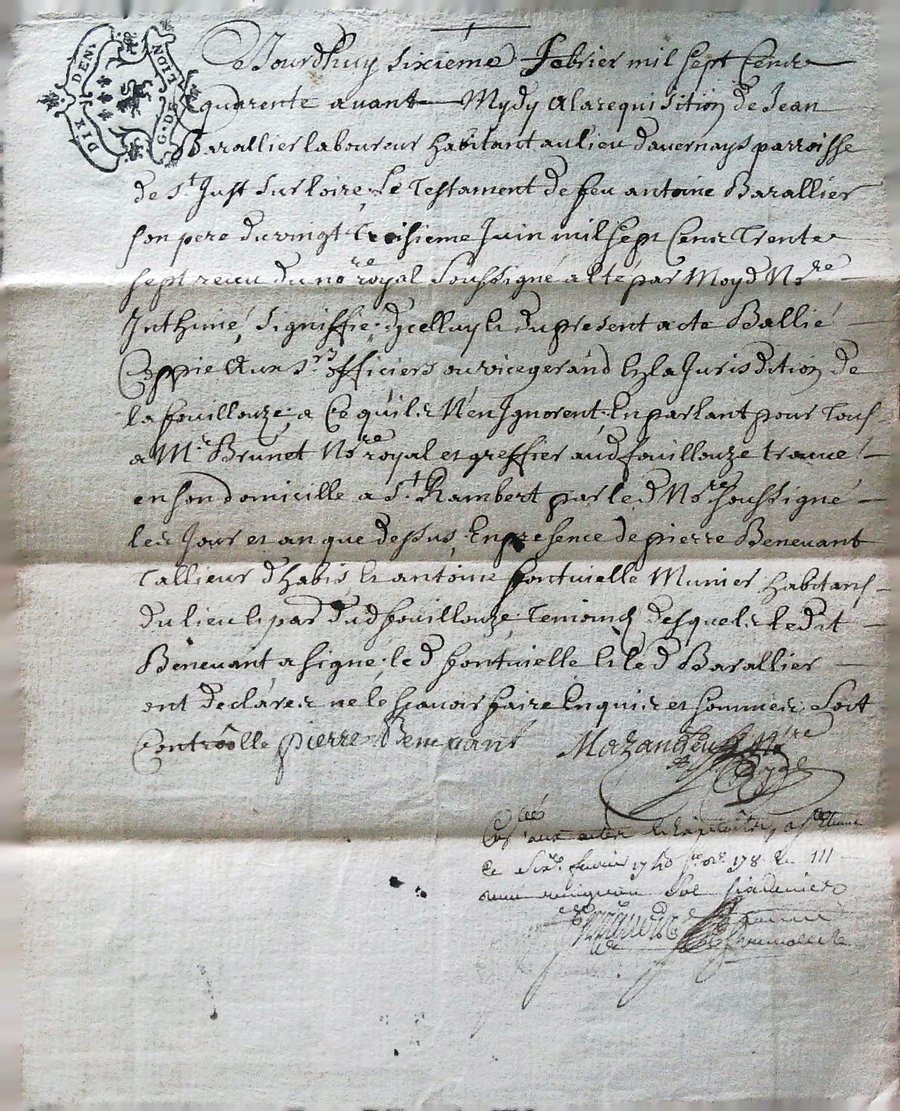 DIX DEN.
G. DE LION
Ce Jourdhuy sixieme febrier mil sept Cent
quarente avant Mydy alarequisition de Jean
Barallier laboureur habitant aulieu davernays parroisse
de St Just sur loire, le Testament de feu antoine Barallier
son pere du vingt Troisieme Juin mil sept Cent Trente
sept receu du nore royal soussigné a lte par Moyd Nore
Inthimé, signiffie, dicelluy et du present acte Ballié
Coppie aux srs officiers ou vicegerand En la Jurisdition de
la fouillouze, a Ce quils N'en Ignorent, En parlant pour Tous
a Mr Brunet Nore royal et greffier aud fouillouze trouve
en son domicille a St Rambert par led Nore soussigné
les Jour et an que dessus, En presence de pierre Benevant
Tallieur dhabis et antoine fontvielle Munier habitans
du lieu et par dud fouillouze, Temoins desquels ledit
Benevant a signe, led fontvielle et led Barallier
ont declarer ne le scavoir faire Enquis et sommes. Soit
Controolle pierre Benevant Mazandieu Nre
royal
aux actes a St Etienne
le Six fevrier 1740 178
Sol six deniers